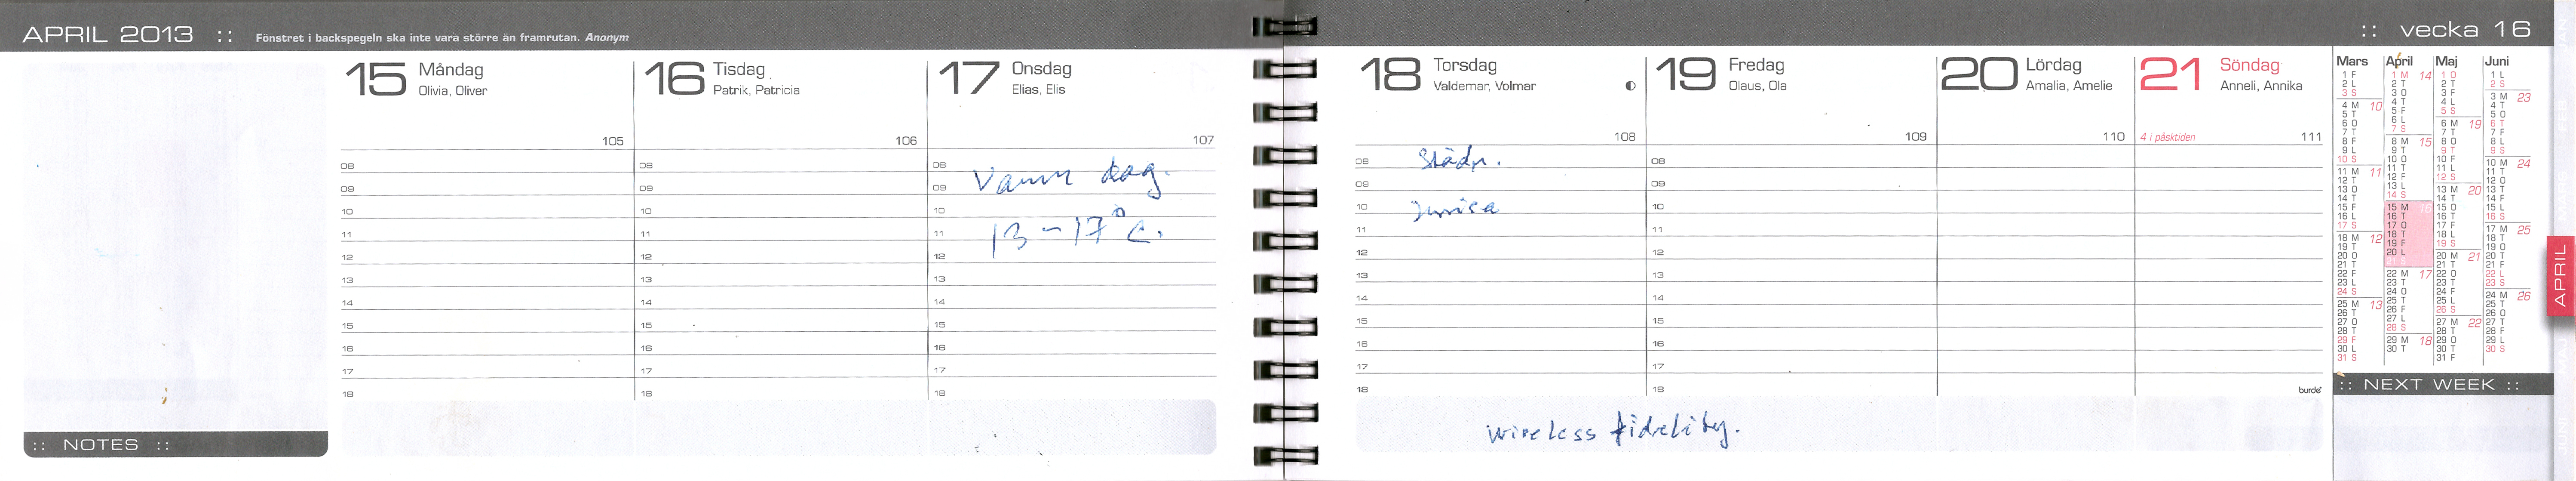 APRIL 2013 :: Fönstret i backspegeln ska inte vara större än framrutan. Anonym
:: vecka 16
15 Måndag
Olivia, Oliver
105
16 Tisdag
Patrik, Patricia
106
17 Onsdag
Elias, Elis
107
08
09
10
11
12
13
14
15
16
17
18
08
09
10
11
12
13
14
15
16
17
18
08
09
10
11
12
13
14
15
16
17
18
Varm dag.
13-17° C.
:: NOTES ::
18 Torsdag
Valdemar, Volmar
108
19 Fredag
Olaus, Ola
109
20 Lördag
Amalia, Amelie
110
21 Söndag
Anneli, Annika
4 i påsktiden 111
08 Städn.
09
10
11
12
13
14
15
16
17
18
08
09
10
11
12
13
14
15
16
17
18
burde
wireless fidelity.
Mars
1 F
2 L
3 S
4 M 10
5 T
6 O
7 T
8 F
9 L
10 S
11 M 11
12 T
13 O
14 T
15 F
16 L
17 S
18 M 12
19 T
20 O
21 T
22 F
23 L
24 S
25 M 13
26 T
27 O
28 T
29 F
30 L
31 S
April
1 M 14
2 T
3 O
4 T
5 F
6 L
7 S
8 M 15
9 T
10 O
11 T
12 F
13 L
14 S
15 M 16
16 T
17 O
18 T
19 F
20 L
21 S
22 M 17
23 T
24 O
25 T
26 F
27 L
28 S
29 M 18
30 T
Maj
1 O
2 T
3 F
4 L
5 S
6 M 19
7 T
8 O
9 T
10 F
11 L
12 S
13 M 20
14 T
15 O
16 T
17 F
18 L
19 S
20 M 21
21 T
22 O
23 T
24 F
25 L
26 S
27 M 22
28 T
29 O
30 T
31 F
Juni
1 L
2 S
3 M 23
4 T
5 O
6 T
7 F
8 L
9 S
10 M 24
11 T
12 O
13 T
14 F
15 L
16 S
17 M 25
18 T
19 O
20 T
21 F
22 L
23 S
24 M 26
25 T
26 O
27 T
28 F
29 L
30 S
:: NEXT WEEK ::
APRIL